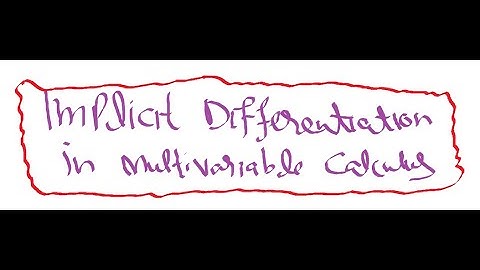 Implicit Differentiation
in Multivariable Calculus